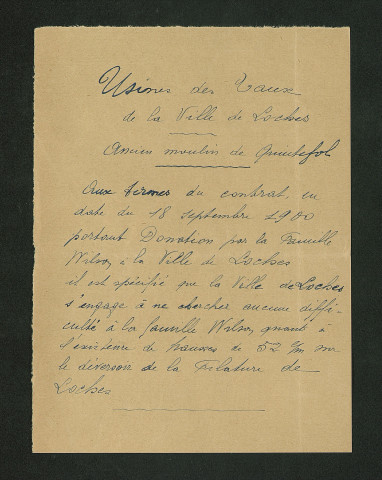 Usines des Eaux
de la Ville de Loches
Ancien moulin de Quintefol
Aux termes du contrat, en
date du 18 Septembre 1900
portant Donation par la Famille
Wilson, à la Ville de Loches
il est spécifié que la Ville de Loches
s'engage à ne chercher aucune diffi-
culté à la famille Wilson, quant à
l'existence de hausses de 52 c/m sur
le déversoir de la Filature de
Loches